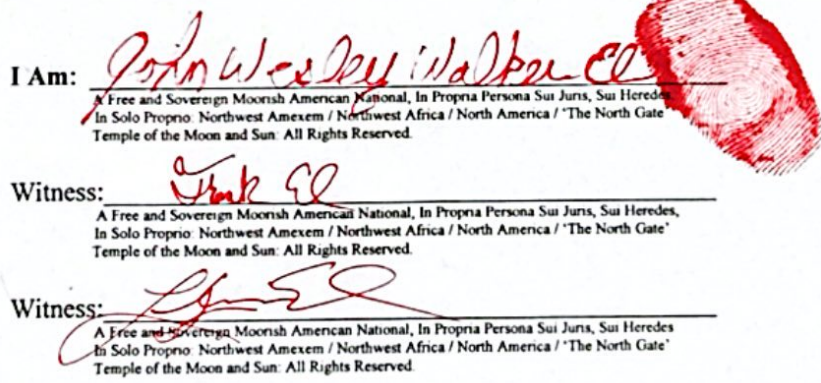 I Am: John Wesley Walker El
A Free and Sovereign Moorish American National, In Propria Persona Sui Juris, Sui Heredes
In Solo Proprio: Northwest Amexem / Northwest Africa / North America / 'The North Gate'
Temple of the Moon and Sun: All Rights Reserved.
Witness: Frank El
A Free and Sovereign Moorish American National, In Propria Persona Sui Juris, Sui Heredes,
In Solo Proprio: Northwest Amexem / Northwest Africa / North America / 'The North Gate'
Temple of the Moon and Sun: All Rights Reserved.
Witness:
A Free and Sovereign Moorish American National, In Propria Persona Sui Juris, Sui Heredes
In Solo Proprio: Northwest Amexem / Northwest Africa / North America / 'The North Gate'
Temple of the Moon and Sun: All Rights Reserved.